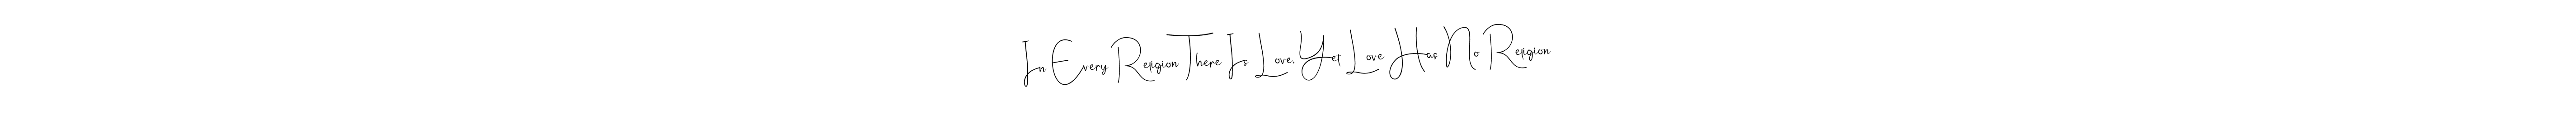 In Every Religion There Is Love, Yet Love Has No Religion